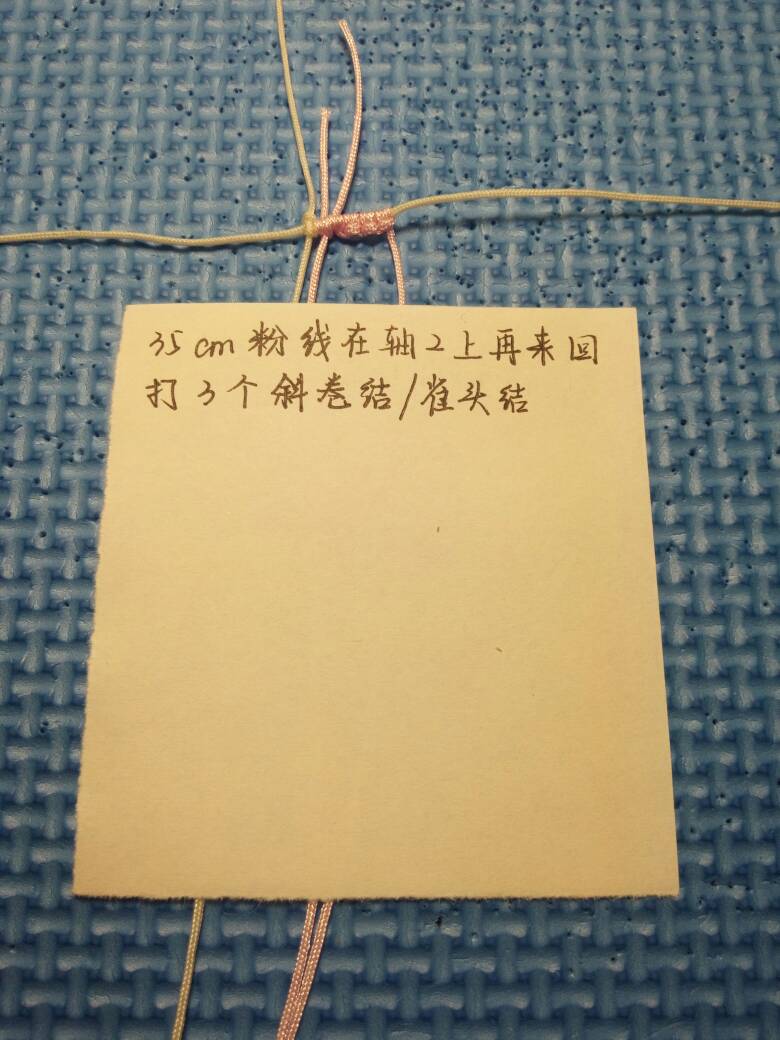 35cm粉线在轴2上再来回
打3个斜卷结/雀头结